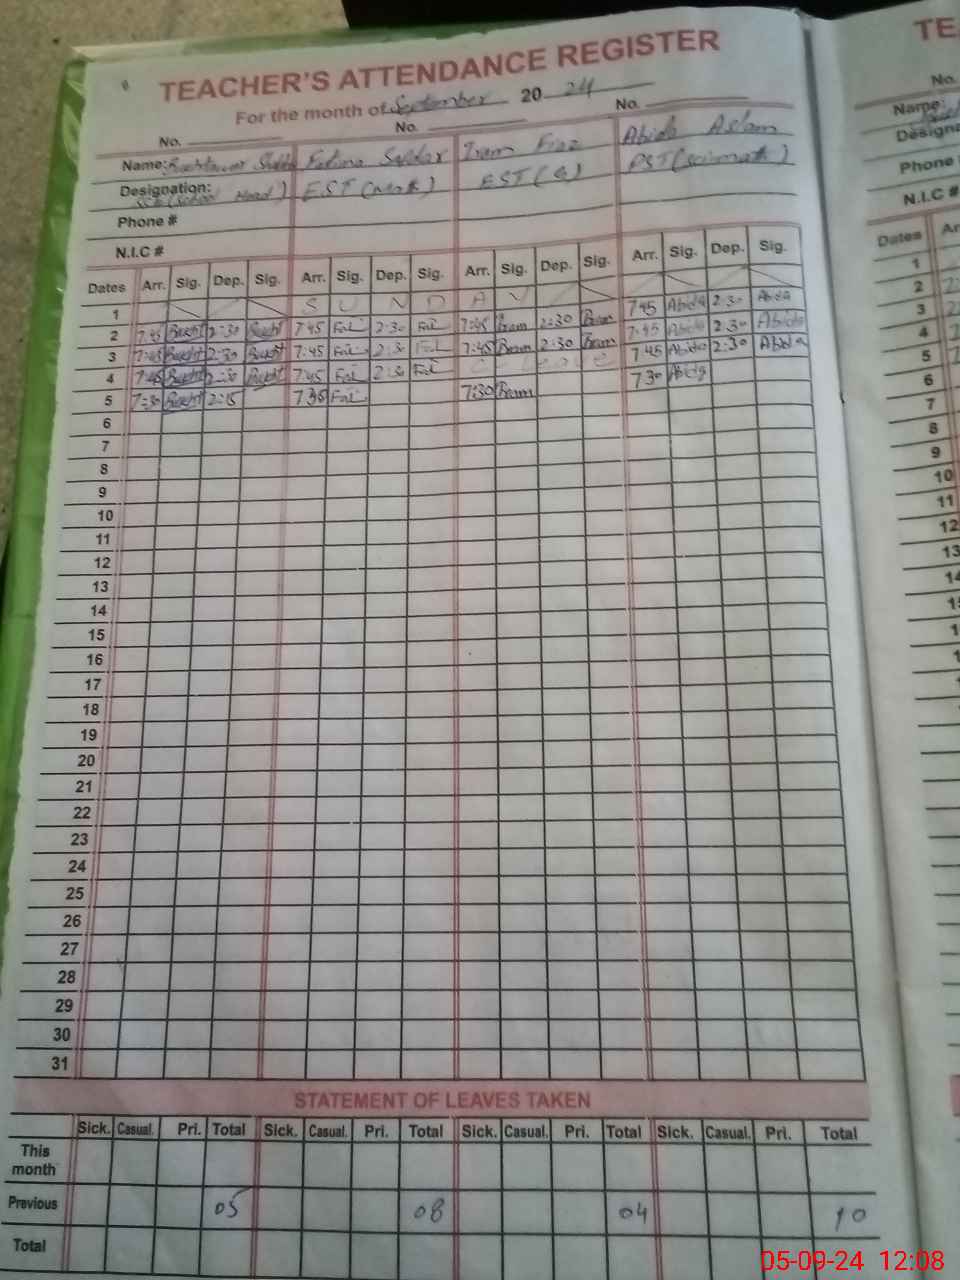 TEACHER'S ATTENDANCE REGISTER
For the month of September 2024
No. No. No.
Name: Fatima Safdar Iram Fiaz Abida Aslam
Designation: SSE (School Head) EST (Math) EST (S) PST (Sci-math)
Phone #
N.I.C #
Dates Arr. Sig. Dep. Sig. Arr. Sig. Dep. Sig. Arr. Sig. Dep. Sig. Arr. Sig. Dep. Sig.
1 S U N D A Y
2 7:45 Bakht 2:30 Bakht 7:45 Fat 2:30 Fat 7:45 Iram 2:30 Iram 7:45 Abida 2:30 Abida
3 7:45 Bakht 2:30 Bakht 7:45 Fat 2:30 Fat 7:45 Iram 2:30 Iram 7:45 Abida 2:30 Abida
4 7:45 Bakht 2:30 Bakht 7:45 Fat 2:30 Fat C Leave 7:45 Abida 2:30 Abida
5 7:30 Bakht 2:15 7:35 Fat 7:30 Iram 7:30 Abida
6
7
8
9
10
11
12
13
14
15
16
17
18
19
20
21
22
23
24
25
26
27
28
29
30
31
STATEMENT OF LEAVES TAKEN
Sick. Casual. Pri. Total Sick. Casual. Pri. Total Sick. Casual. Pri. Total Sick. Casual. Pri. Total
This month
Previous 05 08 04 10
Total
TE
No.
Name:
Designa
Phone
N.I.C #
Dates Ar
1
2
3
4
5
6
7
8
9
10
11
12
13
14
05-09-24 12:08